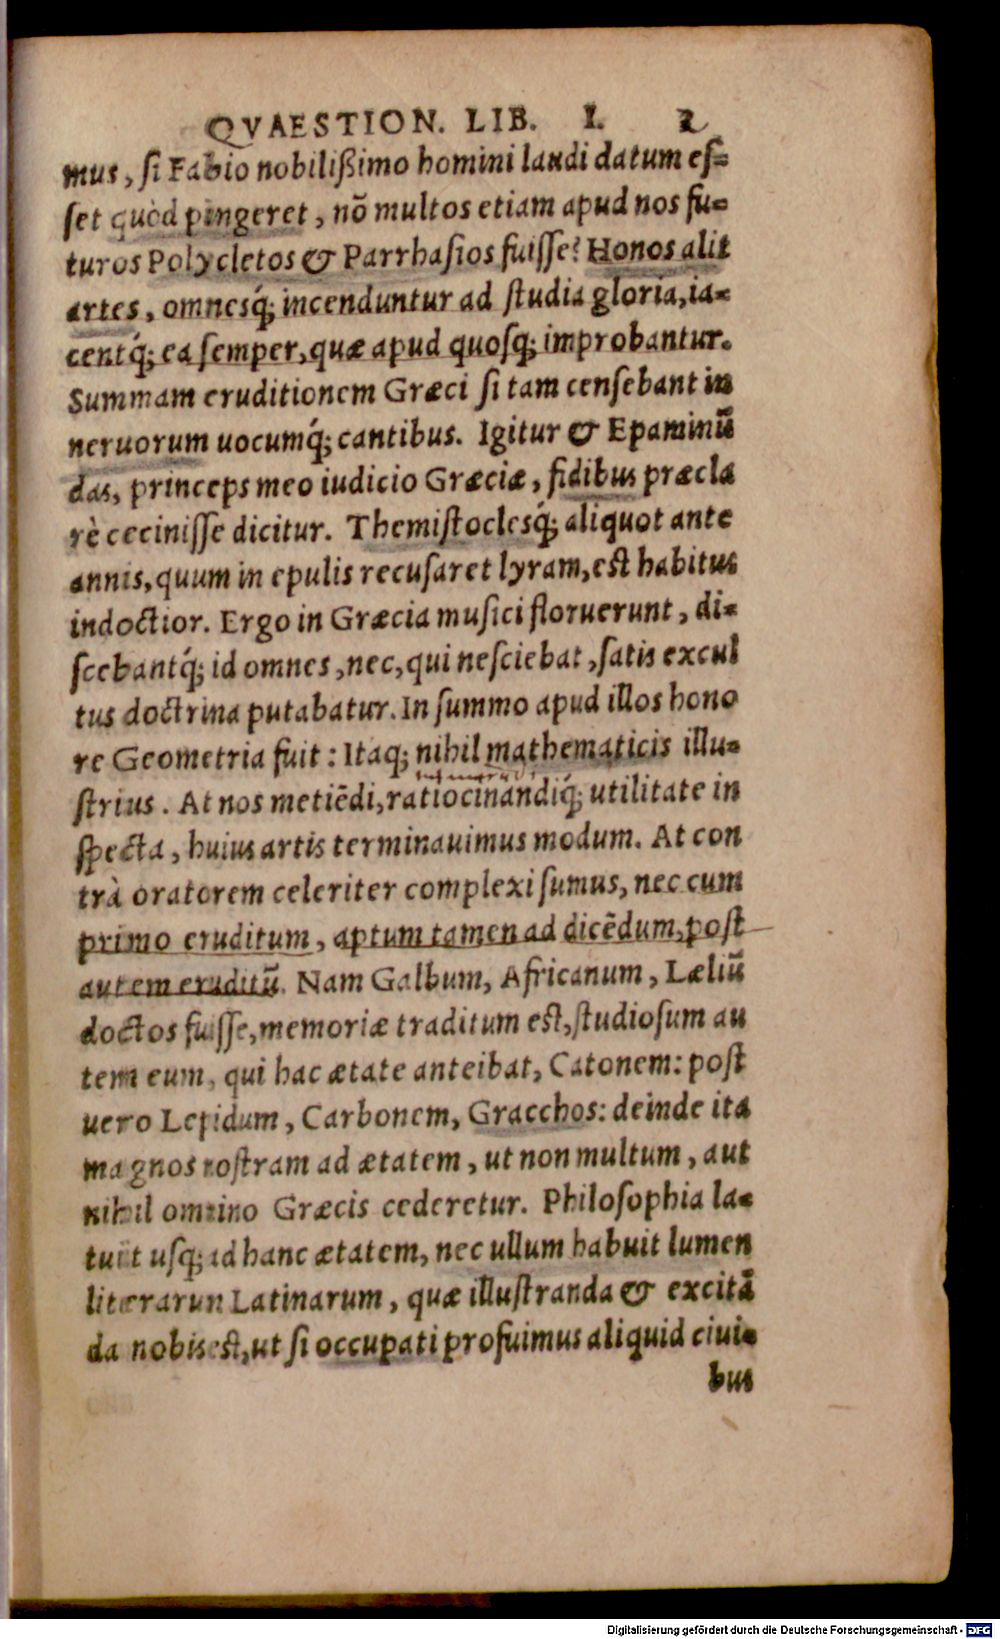 QVAESTION. LIB. I. 2
mus, ſi Fabio nobilißimo homini laudi datum eſ=
ſet quòd pingeret, nõ multos etiam apud nos fu=
turos Polycletos & Parrhaſios fuiſſe? Honos alit
artes, omnesq́; incenduntur ad ſtudia gloria, ia=
centq́; ea ſemper, quæ apud quoſq; improbantur.
Summam eruditionem Græci ſitam cenſebant in
neruorum uocumq́; cantibus. Igitur & Epaminũ
das, princeps meo iudicio Græciæ, fidibus præcla
rè ceciniſſe dicitur. Themiſtoclesq́; aliquot ante
annis, quum in epulis recuſaret lyram, est habitus
indoctior. Ergo in Græcia muſici floruerunt, di=
ſcebantq́; id omnes, nec, qui neſciebat, ſatis excul
tus doctrina putabatur. In ſummo apud illos hono
re Geometria fuit: Itaq; nihil mathematicis illu=
ſtrius. At nos metiẽdi, ratiocinandiq́; utilitate in
ſpecta, huius artis terminauimus modum. At con
trà oratorem celeriter complexi ſumus, nec cum
primo eruditum, aptum tamen ad dicẽdum, poſt
autem eruditũ. Nam Galbum, Africanum, Læliũ
doctos fuiſſe, memoriæ traditum est, ſtudioſum au
tem eum, qui hac ætate anteibat, Catonem: poſt
uero Lepidum, Carbonem, Gracchos: deinde ita
magnos noſtram ad ætatem, ut non multum, aut
nihil omnino Græcis cederetur. Philoſophia ia=
tuit uſq; ad hanc ætatem, nec ullum habuit lumen
literarum Latinarum, quæ illuſtranda & excitã
da nobis est, ut ſi occupati profuimus aliquid ciui=
bus
Digitalisierung gefördert durch die Deutsche Forschungsgemeinschaft - DFG